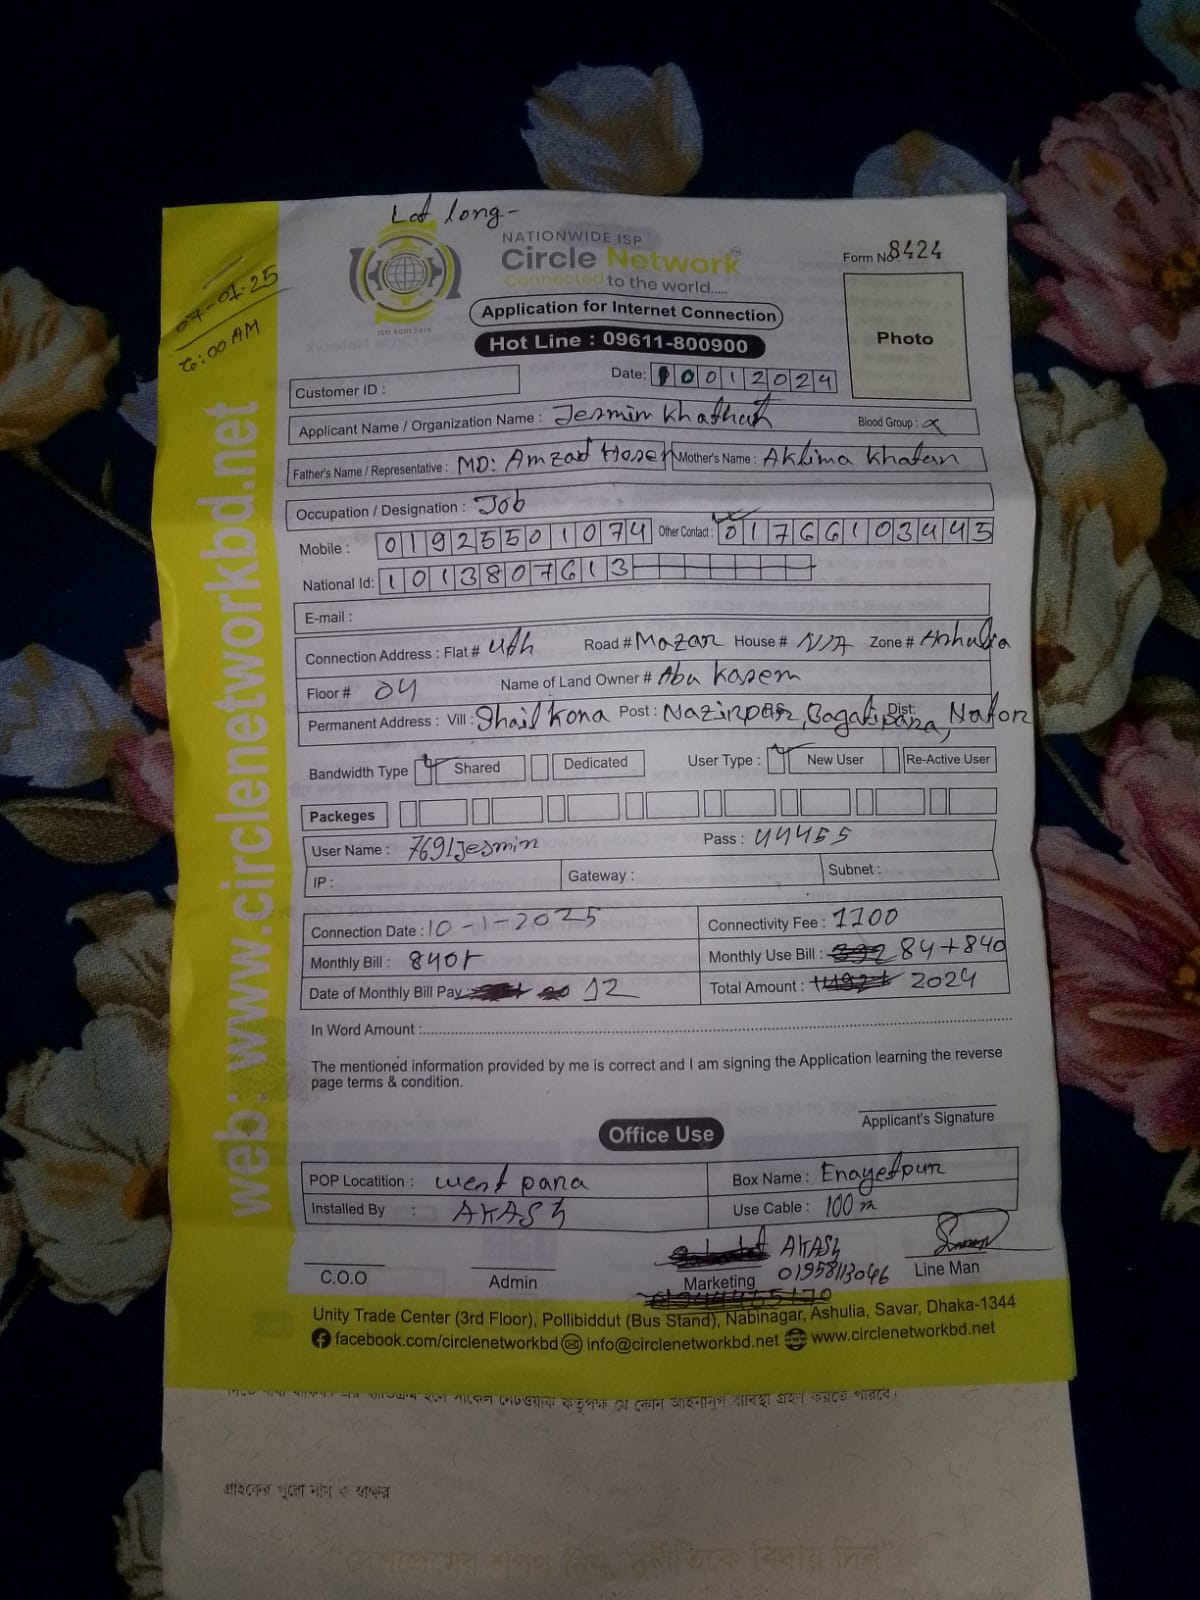 Lat long-
NATIONWIDE ISP
Circle Network
Connected to the world.....
ISO 9001:2015
Form No. 8424
07-01-25
6:00 AM
Application for Internet Connection
Hot Line : 09611-800900
Photo
Customer ID :
Date: 10012024
Applicant Name / Organization Name : Jesmin Khathun
Blood Group :
Father's Name / Representative : MD: Amzad Hosen Mother's Name : Aklima Khatun
Occupation / Designation : Job
Mobile : 01925501074 Other Contact : 01766103445
National Id: 1013807613
E-mail :
Connection Address : Flat # 4th Road # Mazar House # N/A Zone # Ashulia
Floor # 04 Name of Land Owner # Abu Kasem
Permanent Address : Vill : Shailkona Post : Nazirpur, Bagatipara, Dist: Nator
Bandwidth Type Shared Dedicated User Type : New User Re-Active User
Packeges
User Name : 7691Jesmin Pass : 44455
IP : Gateway : Subnet :
Connection Date : 10-1-2025 Connectivity Fee : 1100
Monthly Bill : 840 Monthly Use Bill : 84+840
Date of Monthly Bill Pay: 12 Total Amount : 2024
In Word Amount :
The mentioned information provided by me is correct and I am signing the Application learning the reverse
page terms & condition.
Applicant's Signature
Office Use
POP Locatition : west para Box Name : Enayetpur
Installed By : AKASh Use Cable : 100 m
AKASh
C.O.O Admin Marketing 01958113046 Line Man
Unity Trade Center (3rd Floor), Pollibiddut (Bus Stand), Nabinagar, Ashulia, Savar, Dhaka-1344
facebook.com/circlenetworkbd info@circlenetworkbd.net www.circlenetworkbd.net
web: www.circlenetworkbd.net
কর্তৃপক্ষ যে কোন আইনানুগ ব্যবস্থা গ্রহণ করতে পারবে।
গ্রাহকের পুরো নাম ও স্বাক্ষর
"দেশপ্রেমের শপথ নিন, দুর্নীতিকে বিদায় দিন"